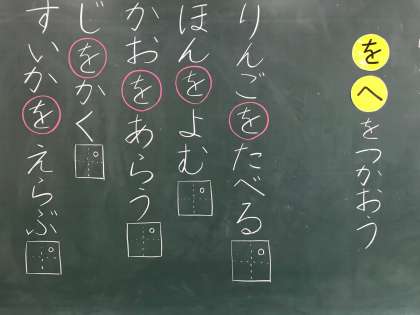 をへをつかおう
りんごをたべる。
ほんをよむ。
かおをあらう。
じをかく。
すいかをえらぶ。